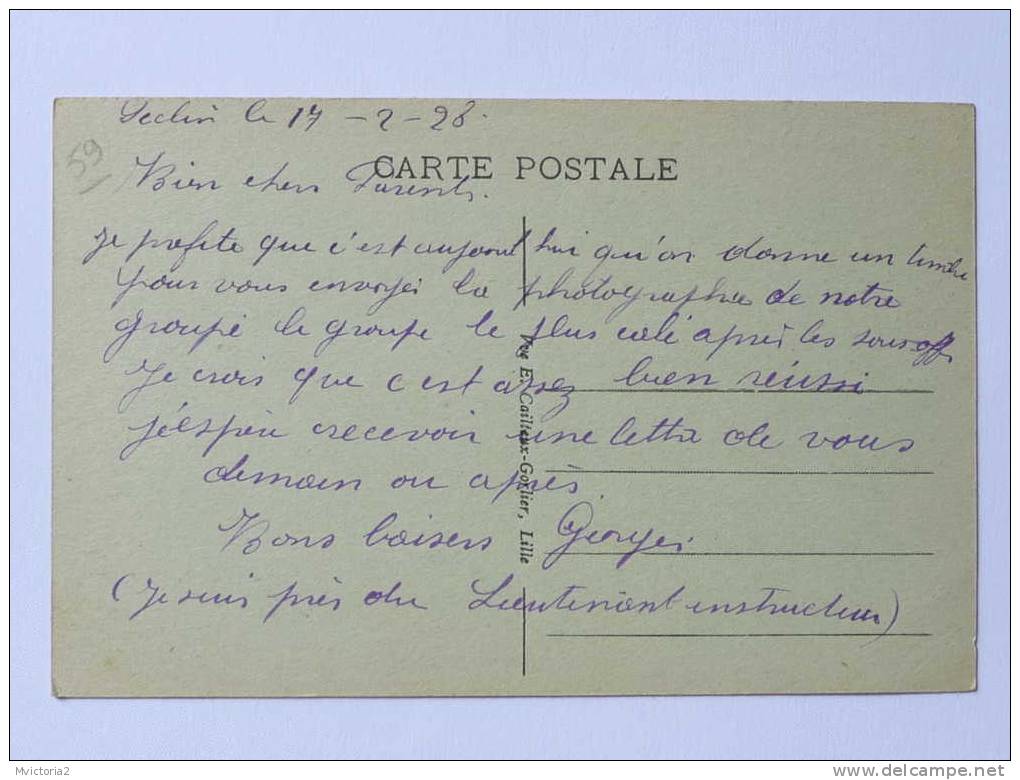 Seclin le 17 - 2 - 28.
59
CARTE POSTALE
Bien chers Parents.
Je profite que c'est aujourd'hui qu'on donne un timbre
pour vous envoyer la photographie de notre
groupe le groupe le plus calé après les sous-offs
Je crois que c'est assez bien réussi
j'éspère recevoir une lettre de vous
demain ou après.
Bons baisers Georges
(Je suis près du Lieutenant instructeur)
Vve E. Cailleux-Gorlier, Lille
Mvictoria2
delcampe.net